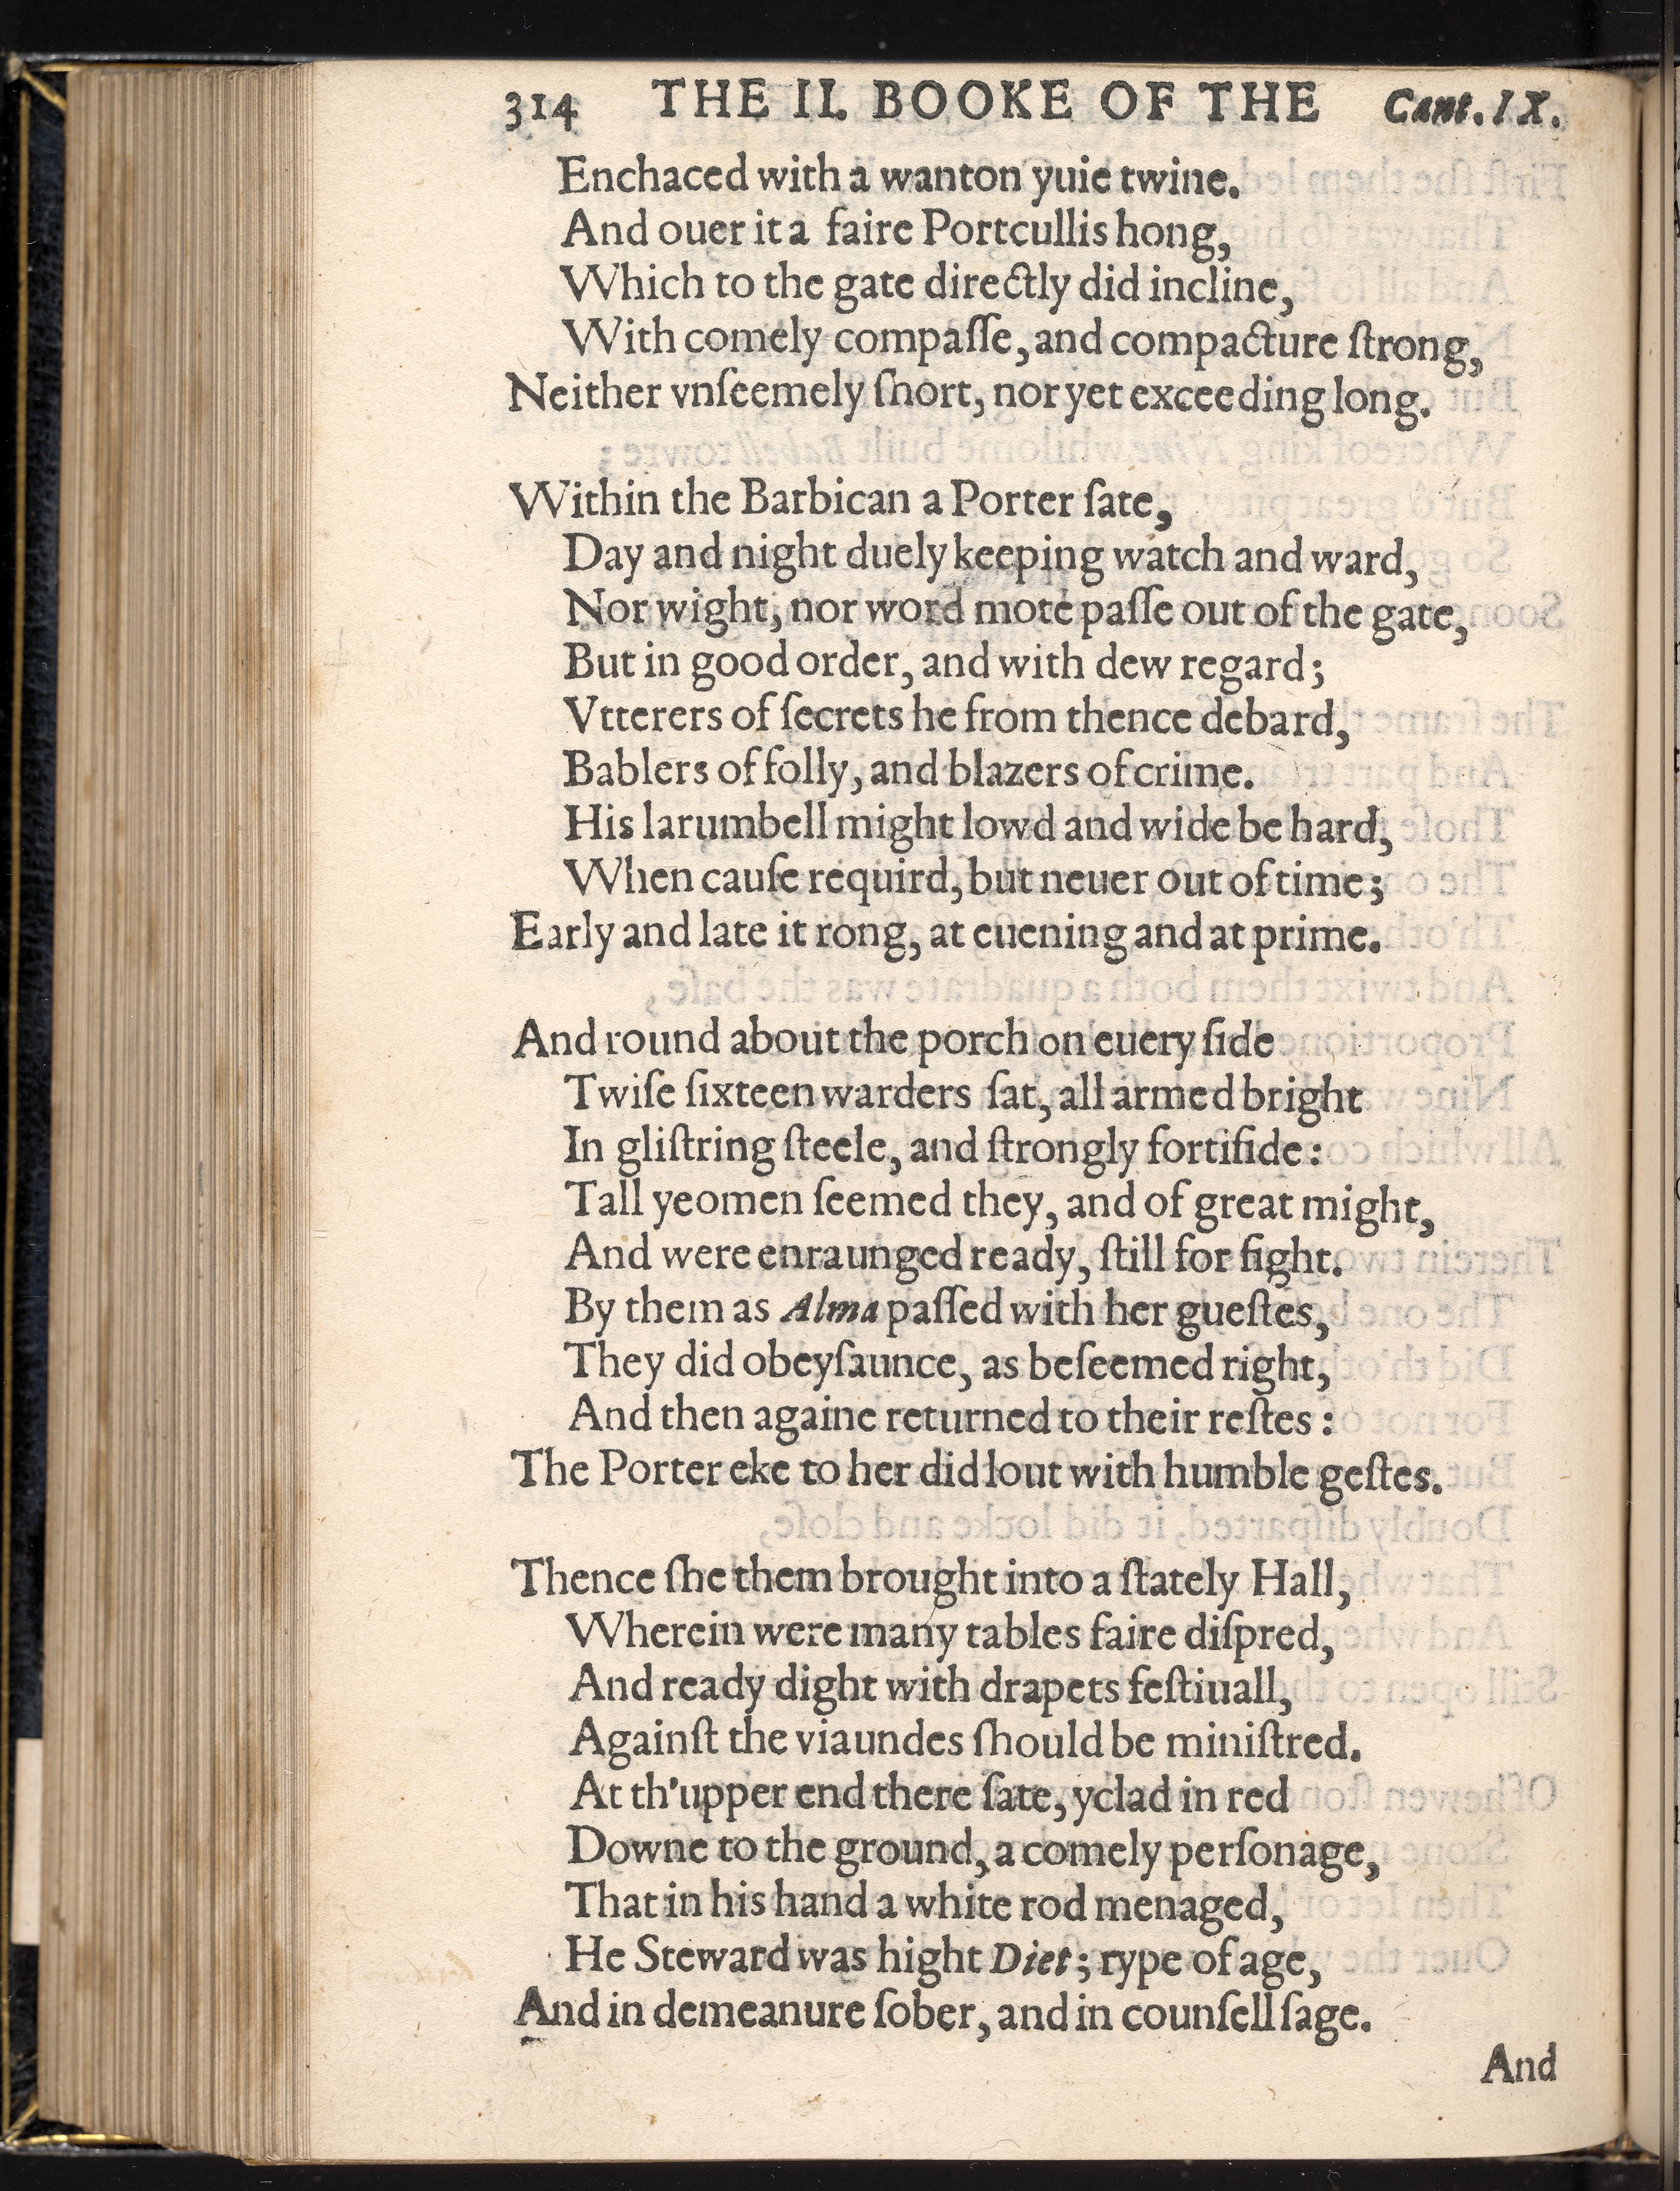 314 THE II. BOOKE OF THE Cant. IX.
Enchaced with a wanton yuie twine.
And ouer it a faire Portcullis hong,
Which to the gate directly did incline,
With comely compaſſe, and compacture ſtrong,
Neither vnſeemely ſhort, nor yet exceeding long.
Within the Barbican a Porter ſate,
Day and night duely keeping watch and ward,
Nor wight, nor word mote paſſe out of the gate,
But in good order, and with dew regard;
Vtterers of ſecrets he from thence debard,
Bablers of folly, and blazers of crime.
His larumbell might lowd and wide be hard,
When cauſe requird, but neuer out of time;
Early and late it rong, at euening and at prime.
And round about the porch on euery ſide
Twiſe ſixteen warders ſat, all armed bright
In gliſtring ſteele, and ſtrongly fortifide:
Tall yeomen ſeemed they, and of great might,
And were enraunged ready, ſtill for fight.
By them as Alma paſſed with her gueſtes,
They did obeyſaunce, as beſeemed right,
And then againe returned to their reſtes:
The Porter eke to her did lout with humble geſtes.
Thence ſhe them brought into a ſtately Hall,
Wherein were many tables faire diſpred,
And ready dight with drapets feſtiuall,
Againſt the viaundes ſhould be miniſtred.
At th'upper end there ſate, yclad in red
Downe to the ground, a comely perſonage,
That in his hand a white rod menaged,
He Steward was hight Diet; rype of age,
And in demeanure ſober, and in counſell ſage.
And